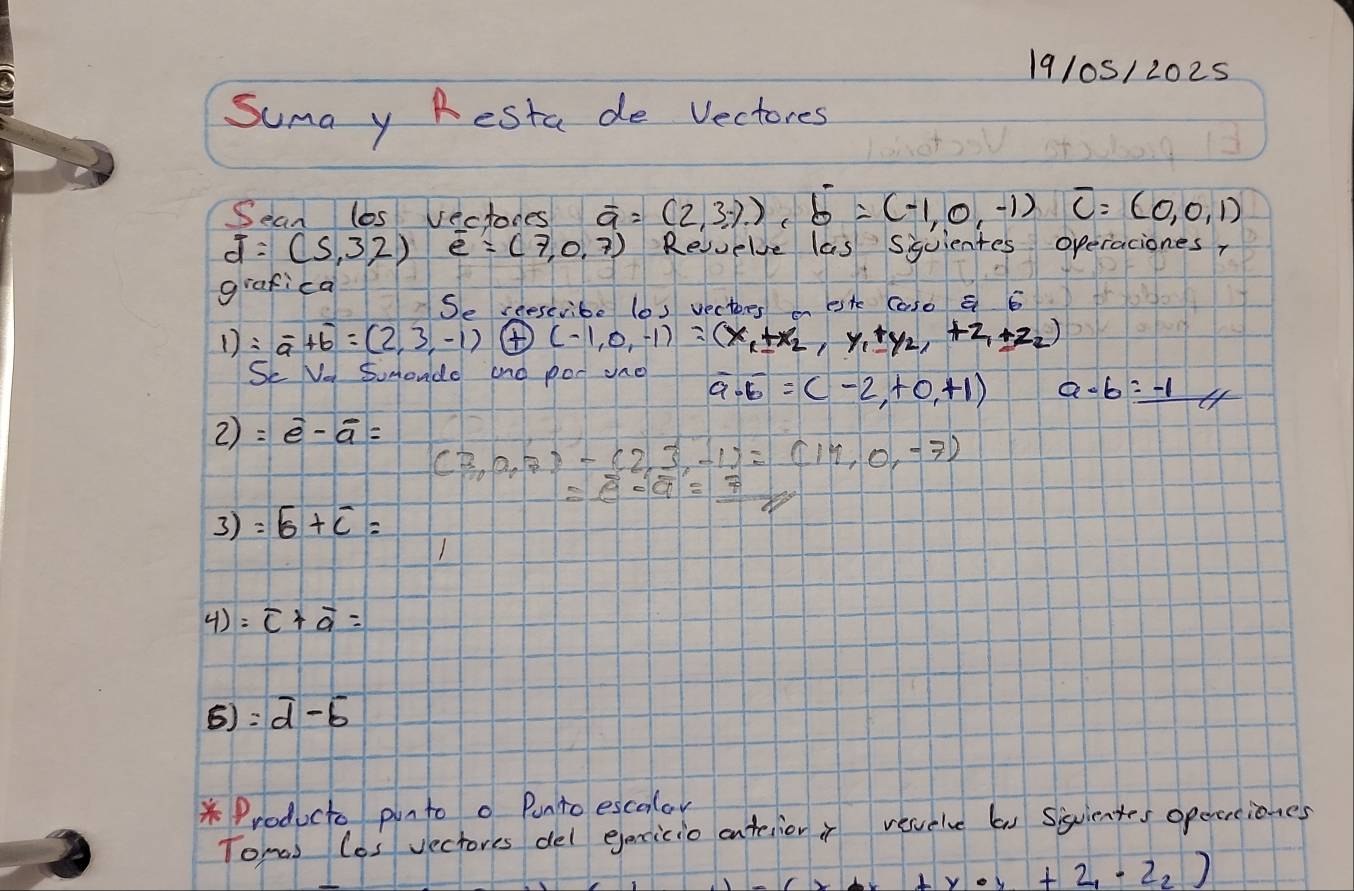 19/05/2025
Suma y Resta de Vectores
Sean los vectores ā = (2,3,-1), b̄ = (-1,0,-1) c̄ = (0,0,1)
d̄ = (5,3,2) ē = (7,0,7) Resuelve las siguientes operaciones,
grafica
Se reescribe los vectores en este caso ā b̄
1) = ā + b̄ = (2,3,-1) ⊕ (-1,0,-1) = (x₁+x₂, y₁+y₂, +z₁+z₂)
Se Va Sumando uno por uno ā·b̄ = (-2,+0,+1) a·b = -1
2) = ē - ā =
(7,0,7) - (2,3,-1) = (14,0,-7)
= ē - ā = 7
3) = b̄ + c̄ =
4) = c̄ + ā =
5) = d̄ - b̄
* Producto punto o Punto escalar
Tomas los vectores del ejericicio anterior y resuelve las siguientes operaciones
+ z₁ · z₂)